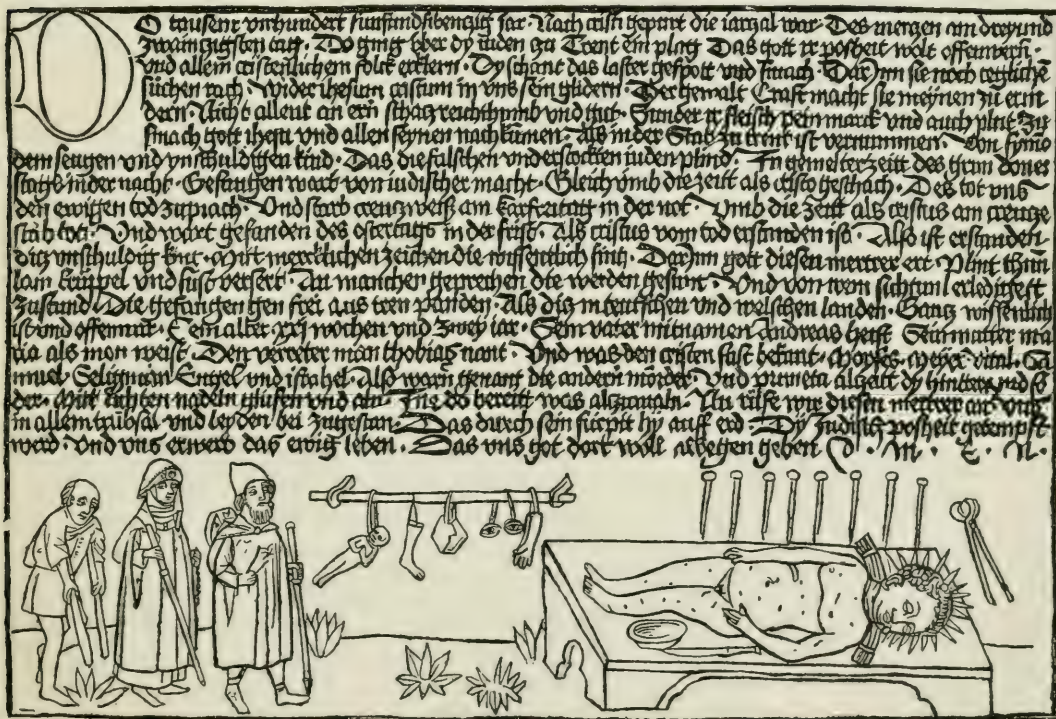 DO tausent vnhundert funfundsibenczig iar · Nach cristi gepurt die iarzal war · Des merczen am dreyund
zwainczigsten tag · Do ging vber dy iuden zu Trent ein plag Das gott ir posheit wolt offembern ·
vnd allem cristenlichem folck erklern · Dy schant das laster gespott vnd smach · Dar jnn sie noch teglichē
suchen rach · wider ihesum cristum in vns sein glidern · Der gemalt Craft macht sie meynen zu erni
dern · Nicht allein an ern schacz reichthumb vnd gut · Sunder ir fleisch pein marck vnd auch plut · Zu
smach gott ihesu vnd allen seynen nachkumen · Als in der Stat zu trent ist vernummen · Von symō
dem seugen vnd vnschuldigen kind · Das die falschen vnd erstockten iuden plind · In gemelter zeitt des grun dones
stags in der nacht · Gefangen wart von iudischer macht · Gleich vmb die zeitt als cristo geschach · Des tot vns
den ewigen tod zuprach · Vnd starb creuczweiß am karfreitag in der not · Vmb die zeitt als cristus am creucze
starb tot · Vnd wart gefunden des ostertags in der frist · Als cristus vom tod erstanden ist · Also ist erstanden
dicz vnschuldig kint · Mitt mercklichen zeichen die wissentlich sint · Dar jnn gott diesen mertrer ert · Plint thun
lam kruppel vnd sust versert · An manchen geprechen die werden gesunt · Vnd von irem sichtum erledigett
zustund · Die gefangen gen frei aus iren panden · Als dis in teutschen vnd welschen landen · Gancz wissenlich
ist vnd offenwar · E ein alter xxj wochen vnd zwey iar · Sein vater mit namen Andreas heist Sein mutter ma
ria als mon weist · Den verreter man thobias nant · Vnd was den cristen fast bekant · Moyses · Meyer · vital · Sa
muel · Seligman Engel vnd israhel · Also warn genant die andern mörder · Vnd pruneta alczeitt dy hinterr vnd fo
der · Mitt lichten nadeln glufen vnd aln · Jne do bereitt was alczumaln · Nu rüfe wir diesen mertrer an · vns
in allem trübsal vnd leyden bei zugestan · Das durch sein fürpit hy auff erd · Dy Judisch posheit getempft
werd · Vnd vns erwerb das ewig leben · Das vns got dort woll allwegen geben · M · E · N ·